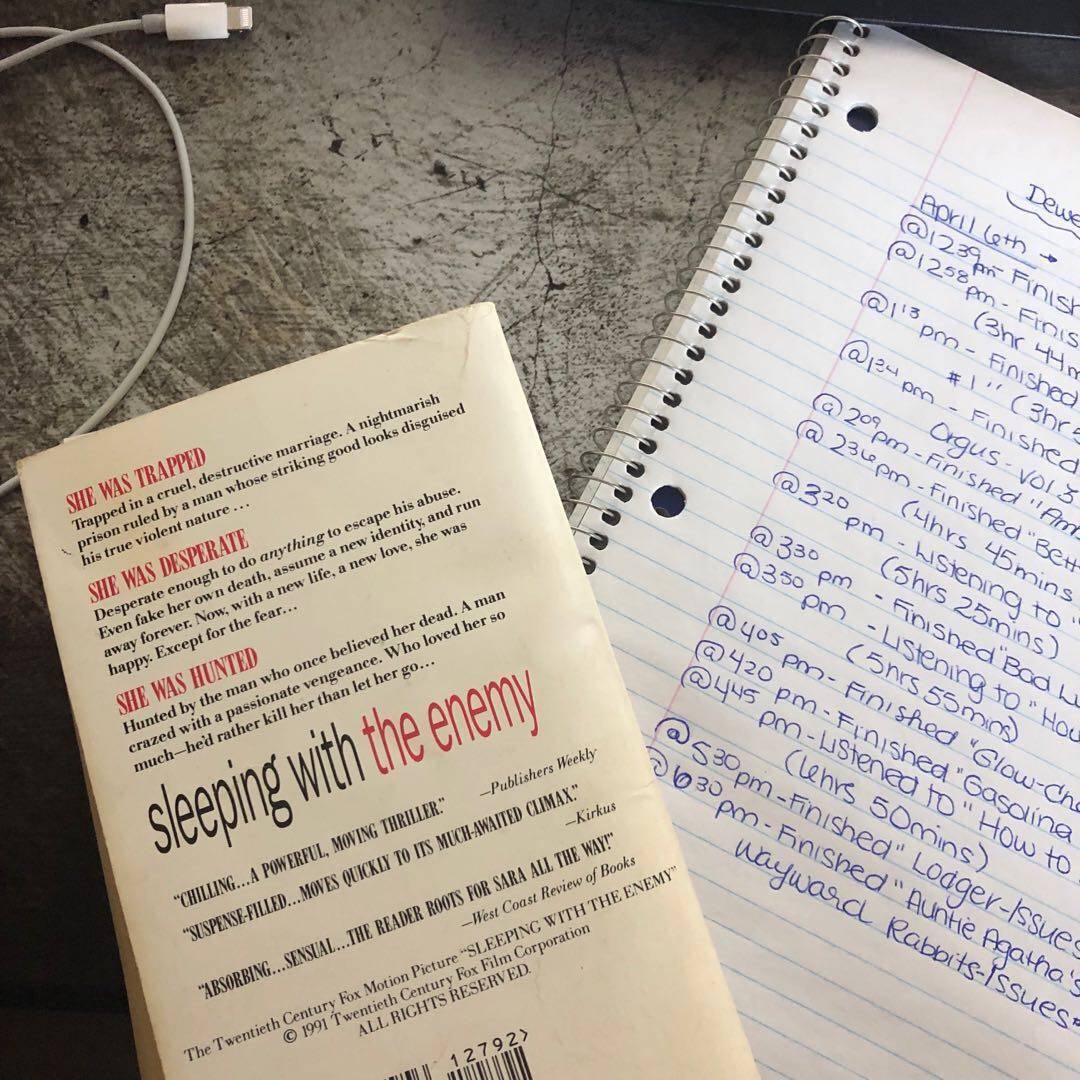 SHE WAS TRAPPED
Trapped in a cruel, destructive marriage. A nightmarish
prison ruled by a man whose striking good looks disguised
his true violent nature ...
SHE WAS DESPERATE
Desperate enough to do anything to escape his abuse.
Even fake her own death, assume a new identity, and run
away forever. Now, with a new life, a new love, she was
happy. Except for the fear...
SHE WAS HUNTED
Hunted by the man who once believed her dead. A man
crazed with a passionate vengeance. Who loved her so
much—he'd rather kill her than let her go...
sleeping with the enemy
"CHILLING...A POWERFUL, MOVING THRILLER."
—Publishers Weekly
"SUSPENSE-FILLED...MOVES QUICKLY TO ITS MUCH-AWAITED CLIMAX."
—Kirkus
"ABSORBING...SENSUAL...THE READER ROOTS FOR SARA ALL THE WAY!"
—West Coast Review of Books
The Twentieth Century Fox Motion Picture "SLEEPING WITH THE ENEMY"
© 1991 Twentieth Century Fox Film Corporation
ALL RIGHTS RESERVED.
12792>
Dewe
April 6th →
@1239pm - Finish
@1258 pm - Finis
(3hr 44m
@113 pm - Finished
#1" (3hr 5
@134 pm - Finished
Orgus - Vol. 5
@209pm - Finished "Am
@236pm - Finished "Bett
(4hrs 45mins
@320 pm - Listening to "
(5hrs 25mins)
@330 pm - Finished "Bad Lu
@350 pm - Listening to "How
(5hrs 55mins)
@405 pm - Finished "Glow-Cha
@420 pm - Finished "Gasolina
@445 pm - Listened to "How to
(6hrs 50mins)
@530pm - Finished "Lodger-Issues
@630 pm - Finished "Auntie Agatha's
Wayward Rabbits-Issues#